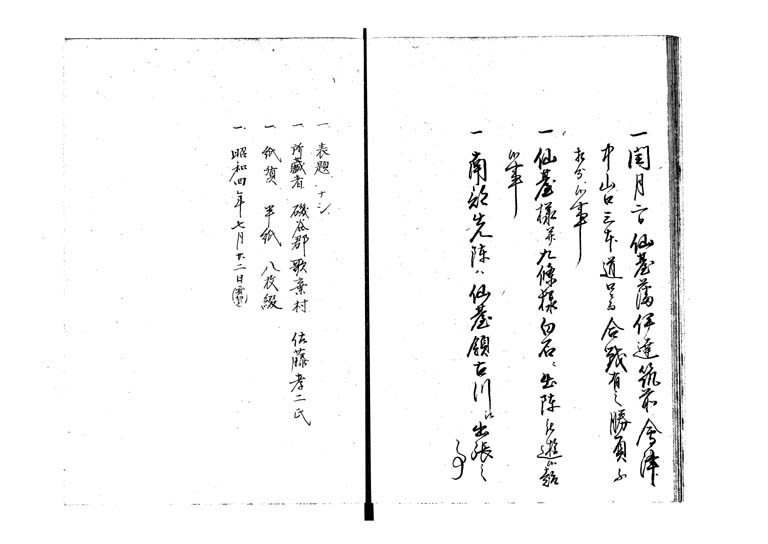 一閏月二日仙臺藩伊達筑前會津
中山口三本道口ニ而合戰有之勝負不
相分候事
一仙臺様并九條様白石ニ出陣被遊候
候事
一南部先陣ハ仙臺領古川江出張之
事
一、表題 ナシ
一、所藏者 磯谷郡歌棄村 佐藤孝二氏
一、紙質 半紙 八枚綴
一、昭和四年七月廿二日